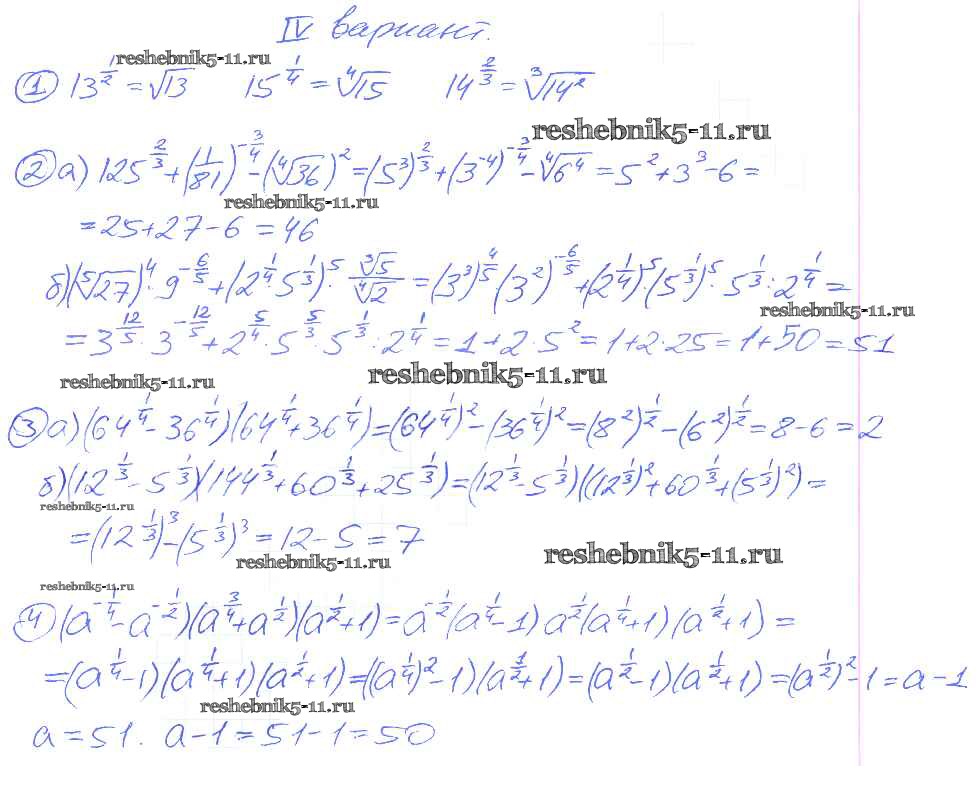 IV вариант.
reshebnik5-11.ru
① 13^{1/2} = √13   15^{1/4} = ⁴√15   14^{2/3} = ³√14²
reshebnik5-11.ru
② а) 125^{2/3} + (1/81)^{-3/4} - (⁴√36)² = (5³)^{2/3} + (3^{-4})^{-3/4} - ⁴√6⁴ = 5² + 3³ - 6 =
reshebnik5-11.ru
= 25 + 27 - 6 = 46
б) (⁵√27)⁴ · 9^{-6/5} + (2^{1/4} 5^{1/3})⁵ · ³√5/⁴√2 = (3³)^{4/5} (3²)^{-6/5} + (2^{1/4})⁵ · (5^{1/3})⁵ · 5^{1/3} : 2^{1/4} =
reshebnik5-11.ru
= 3^{12/5} · 3^{-12/5} + 2^{5/4} · 5^{5/3} · 5^{1/3} : 2^{1/4} = 1 + 2 · 5² = 1 + 2 · 25 = 1 + 50 = 51
reshebnik5-11.ru
reshebnik5-11.ru
③ а) (64^{1/4} - 36^{1/4})(64^{1/4} + 36^{1/4}) = (64^{1/4})² - (36^{1/4})² = (8²)^{1/2} - (6²)^{1/2} = 8 - 6 = 2
б) (12^{1/3} - 5^{1/3})(144^{1/3} + 60^{1/3} + 25^{1/3}) = (12^{1/3} - 5^{1/3})((12^{1/3})² + 60^{1/3} + (5^{1/3})²) =
reshebnik5-11.ru
= (12^{1/3})³ - (5^{1/3})³ = 12 - 5 = 7
reshebnik5-11.ru
reshebnik5-11.ru
reshebnik5-11.ru
④ (a^{-1/4} - a^{-1/2})(a^{3/4} + a^{1/2})(a^{1/2} + 1) = a^{-1/2}(a^{1/4} - 1) a^{1/2}(a^{1/4} + 1)(a^{1/2} + 1) =
= (a^{1/4} - 1)(a^{1/4} + 1)(a^{1/2} + 1) = ((a^{1/4})² - 1)(a^{1/2} + 1) = (a^{1/2} - 1)(a^{1/2} + 1) = (a^{1/2})² - 1 = a - 1
reshebnik5-11.ru
a = 51.   a - 1 = 51 - 1 = 50